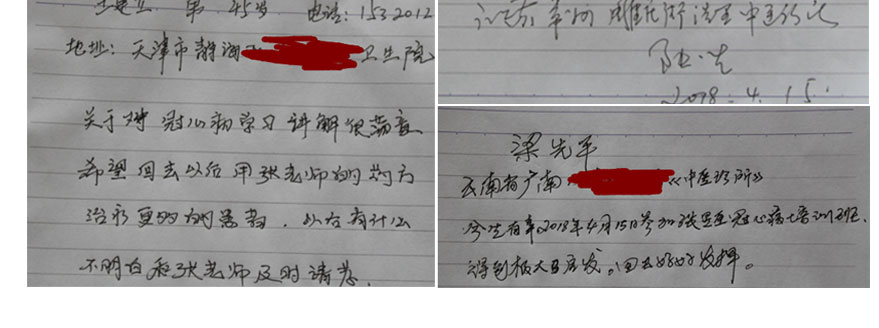 第45号 电话:1532012
地址:天津市静海 卫生院
关于对冠心病学习讲解很满意
希望回去以后用张老师的药方
治疗更多的患者,以后有什么
不明白和张老师及时请教.
2018.4.15
梁先平
云南省广南 《中医诊所》
今生有幸2018年4月15日参加张显臣冠心病培训班.
得到极大启发。回去好好发挥。